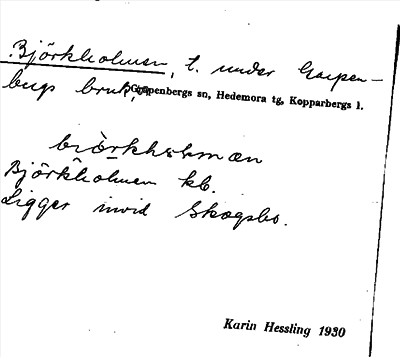 Björkholmen, t. under Garpen-
bergs bruk,
Garpenbergs sn, Hedemora tg, Kopparbergs l.
biòrkhɷlmæn
Björkholmen kb.
Ligger invid Skogsbo.
Karin Hessling 1930